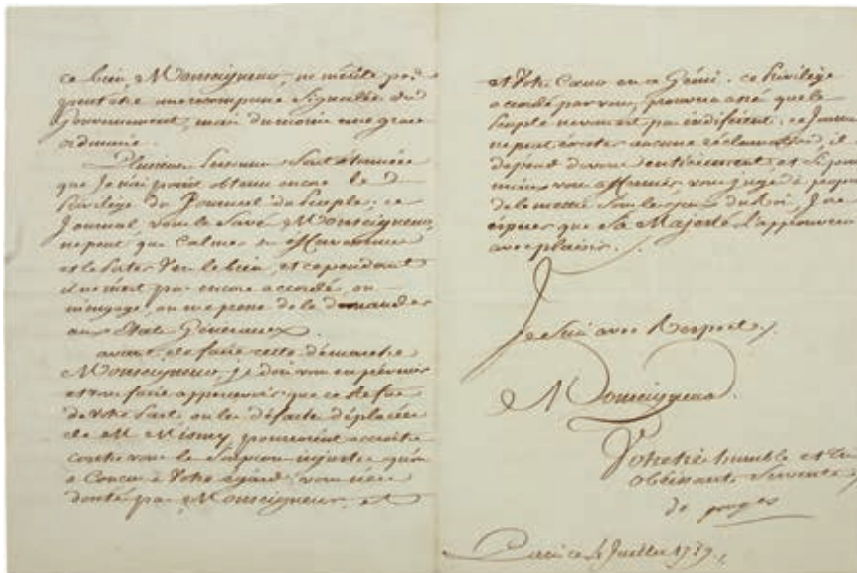 ce bien, Monseigneur, ne mérite pas
peut être une recompense signalée du
Gouvernement, mais du moins une grace
ordinaire.
Plusieurs personnes sont étonnées
que Je n'ai point obtenu encore le
Privilège du Journal du Peuple; ce
Journal, vous le savé Monseigneur,
ne peut que calmer
et le porter vers le bien, et cependant
il ne m'est pas encore accordé, on
m'engage, on me presse de le demander
aux Etats Généraux.
avant de faire cette démarche
Monseigneur, je dois vous en prévenir
et vous faire appercevoir que ce refus
de votre part ou la défaite déplacée
de M Mismy, pourroient accroître
contre vous le soupçon injuste qu'on
a Concu à Votre égard; vous n'en
douté pas Monseigneur, et
et Votre Coeur en a Gémi. ce Privilège
accordé par vous, prouvera que le
Peuple ne vous est pas indiferent. ce Journal
ne peut éxciter aucune réclamation, il
dépend de vous entièrement et si
vous vous jugé à propos
de le mettre sous les yeux du Roi, J'ose
espérer que Sa Majesté l'approuvera
avec plaisir.
Je Suis avec Respect,
Monseigneur
Votre très humble et très
obéissante Servante
de gouges
Paris ce Juillet 1789.